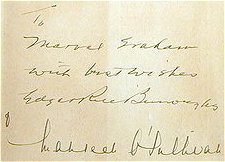 To
Marvel Graham
with best wishes
Edgar Rice Burroughs
Maureen O'Sullivan